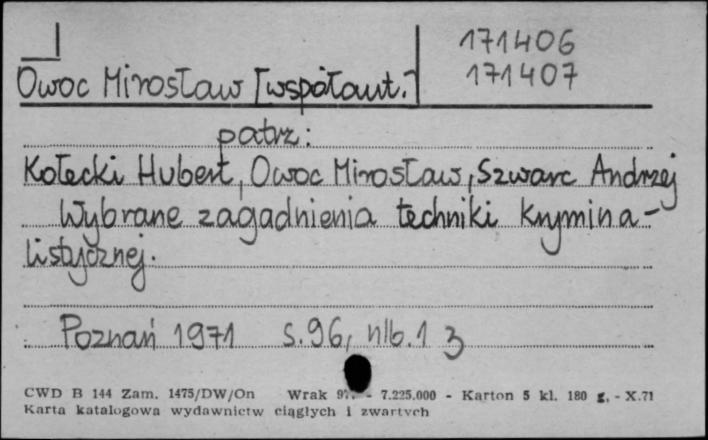 171406
Owoc Mirosław [współaut.]
171407
patrz:
Kołecki Hubert, Owoc Mirosław, Szwarc Andrzej
Wybrane zagadnienia techniki krymina-
listycznej.
Poznań 1971 s. 96, nlb. 1 3
CWD B 144 Zam. 1475/DW/On Wrak - 7.225.000 - Karton 5 kl. 180 g. - X.71
Karta katalogowa wydawnictw ciągłych i zwartych